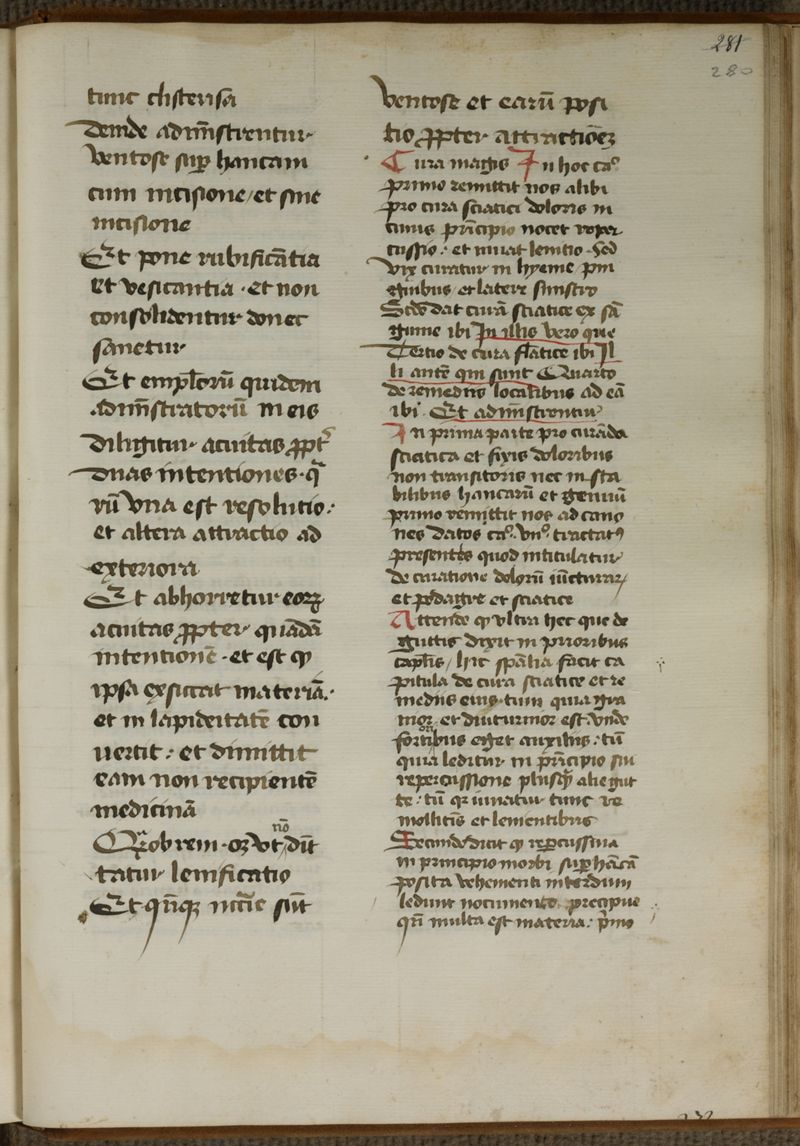 281
280
tunc clisteria
Deinde adm̄istrentur
ventose sup̲ hancam
cum incisione / et sine
incisione
Et pone rubificātia
et vesicantia · et non
consolidentur donec
sanetur
Et empl̄orū quidem
adm̄istratorū in eis
diligitur acuitas ꝓpt̄
duas intentiones · q̄
rū vna est resolutio :
et altera attractio ad
exteriora
Et abhorretur eoꝝ
acuitas ꝓpter quādā
intentionē · et est ꝙ
ipsa exsiccat materiā ·
et in lapideitatē con
uertit : et dimittit
eam non recipientē
medicinā
Q̄robrem · oꝫ vt nō dīt
tatur lenificatio
Et qn̄qꝫ nc̄c̄ie sūt
ventose et earū posi
tio ꝓpter attractiōeꝫ
Cura magis In hoc ca°
primo remittit nos alibi
pro cura sciatici doloris in
cuius prīcipio nocet reper
cussio : et iuuat lenitio · Sed
vix curatur in hyeme · pin
guibus et latere sinistro
Scd̄o dat curā sciatice ex sā
guine ibi In illis vero que
Tertio de cura flātice ibi Il
li antē qui sunt Quarto
de remediis localibus ad eā
ibi · Et adm̄istrentur
In prima parte pro curāda
sciatica et fixis doloribus
non transitoriis nec insta
bilibus hancarū et genuū
primo remittit nos ad cano
nes datos ca°. vn° tractatꝰ
presentis quod intitulatur
de curatione dolorū iūcturarꝝ
et podagre et sciatice
Attende ꝙ vltra hec que de
guttis dixit in prioribus
capl̄is / hic sp̄alia facit ca
pitula de cura sciatice et re
mediis eius · tum quia gra
uior et diuturnior est · vnde
fortioribus eget auxiliis : tū
quia leditur in prīcipio siu
repercussione plusq̄ alie gut
te : tū qr iuuatur tunc re
mollitiīs et lenientibus
Secunde dicit ꝙ repercussiua
in principio morbi sup̲ hācā
posita vehementi interdum
ledunt nocumento precipue
qn̄ multa est materia : primo